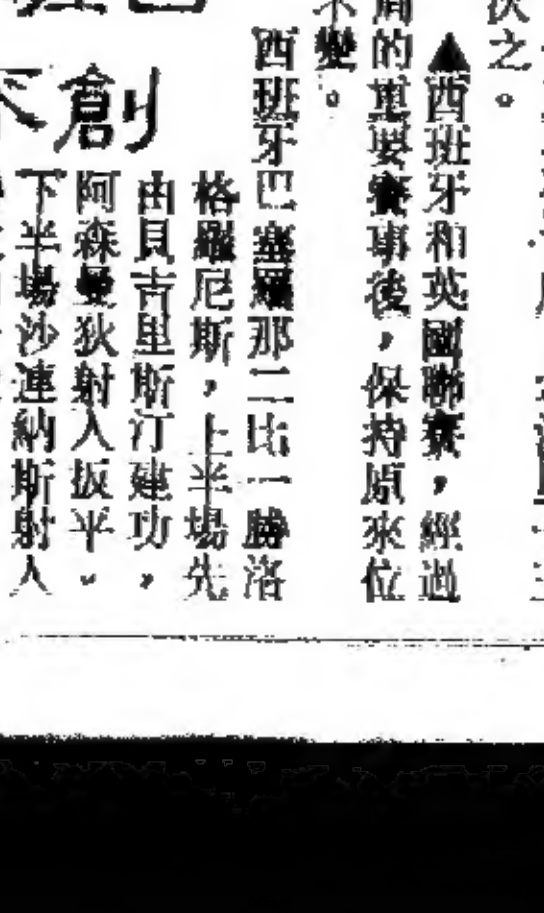 次之。
▲西班牙和英國聯賽，經過
周的重要賽事後，保持原來位
不變。
西班牙巴塞羅那二比一勝洛
格羅尼斯，上半場先
由貝吉里斯汀建功，
阿森曼狄射入扳平。
下半場沙連納斯射入
創